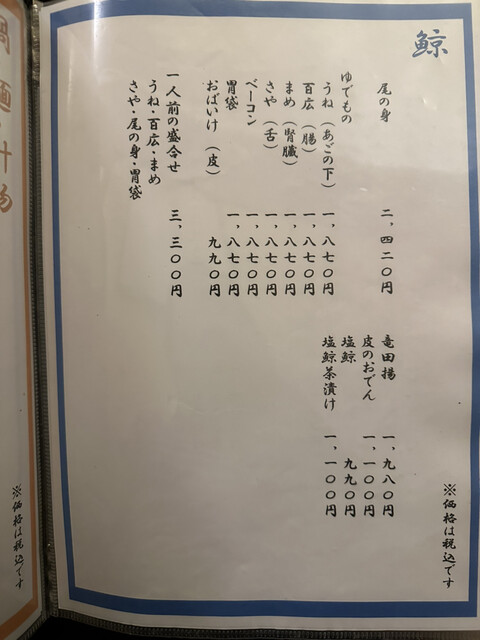 鯨
尾の身 二,四二〇円
ゆでもの
うね(あごの下) 一,八七〇円
百広(腸) 一,八七〇円
まめ(腎臓) 一,八七〇円
さや(舌) 一,八七〇円
ベーコン 一,八七〇円
胃袋 一,八七〇円
おばいけ(皮) 九九〇円
一人前の盛合せ 三,三〇〇円
うね・百広・まめ
さや・尾の身・胃袋
竜田揚 一,九八〇円
皮のおでん 一,一〇〇円
塩鯨 九九〇円
塩鯨茶漬け 一,一〇〇円
※価格は税込です
※価格は税込です